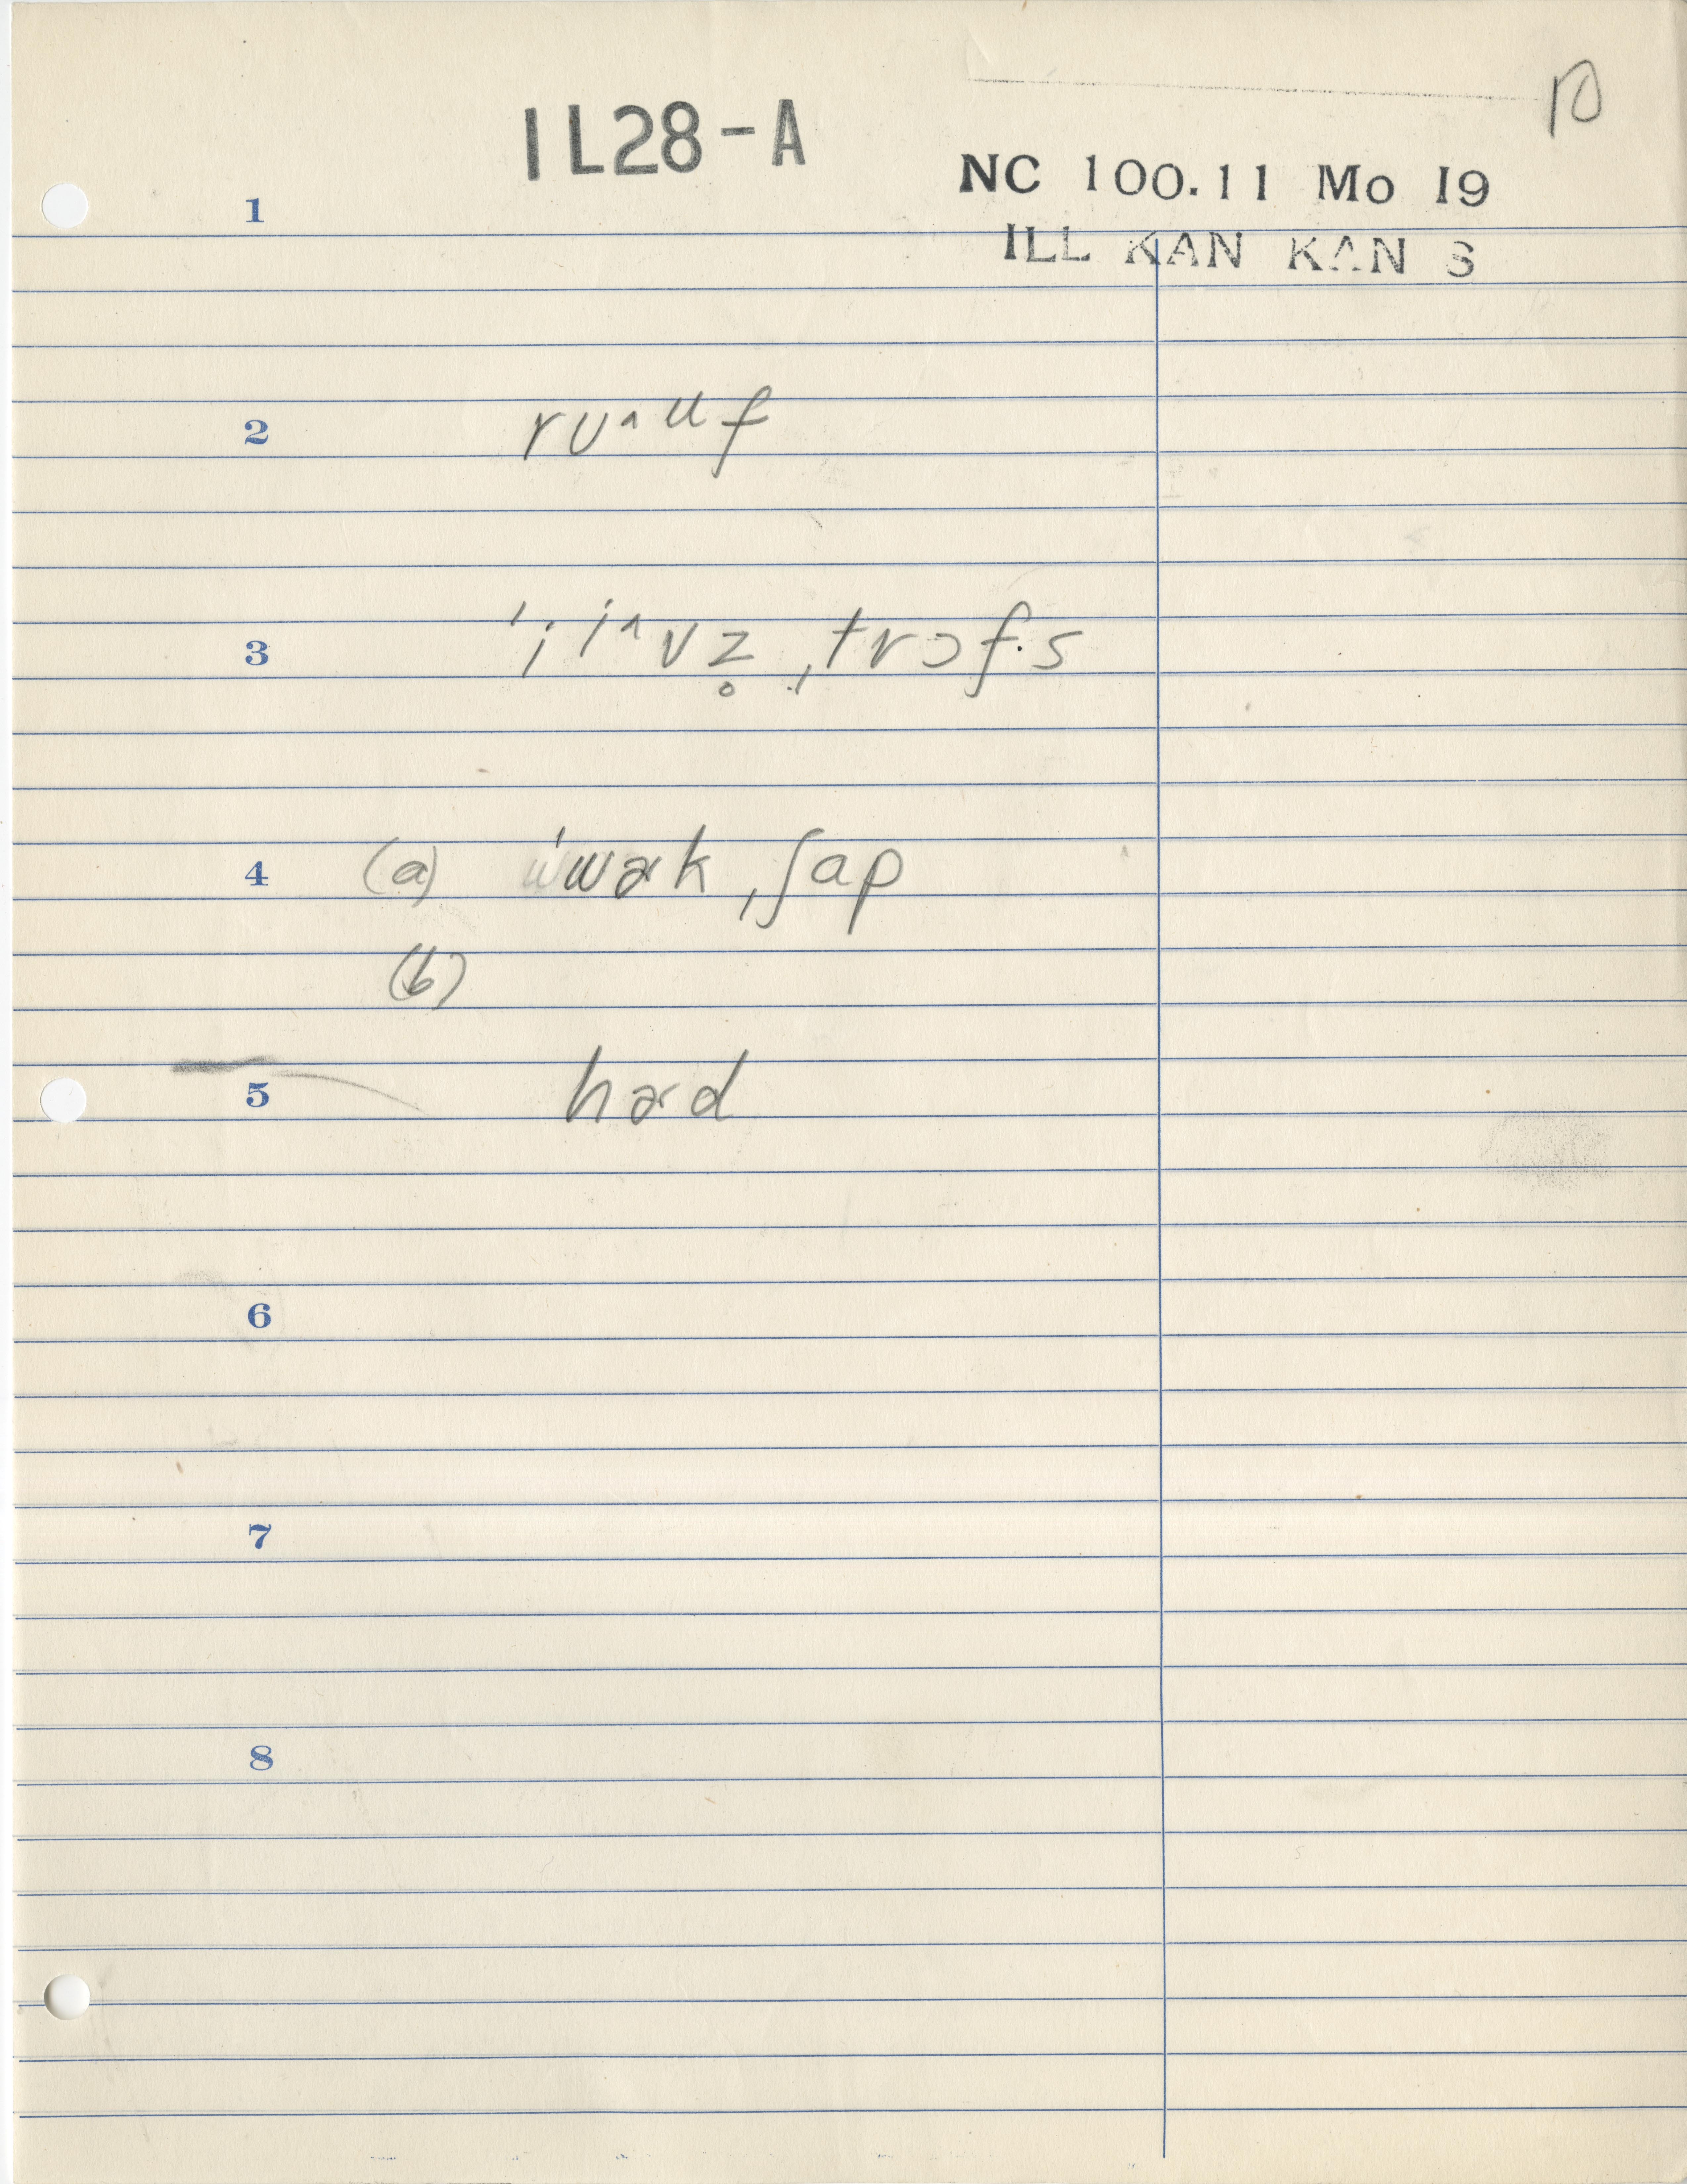 10
1L28-A
NC 100.11 Mo I9
ILL KAN KAN S
1
2 ruᶺᵘf
3 ˈiiᶺvz̥ ˌtrɔf·s
4 (a) ˈwɚk ˌʃap
(b)
5 hɚd
6
7
8